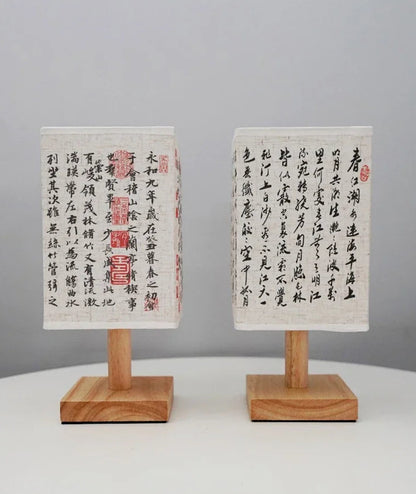 永和九年歲在癸丑暮春之初會
于會稽山陰之蘭亭脩稧事
也羣賢畢至少長咸集此地
有崇山峻領茂林脩竹又有清流激
湍暎帶左右引以為流觴曲水
列坐其次雖無絲竹管弦之
春江潮水連海平海上
明月共潮生灧灧隨波千萬
里何處春江無月明江
流宛轉繞芳甸月照花林
皆似霰空裏流霜不覺
飛汀上白沙看不見江天一
色無纖塵皎皎空中孤月